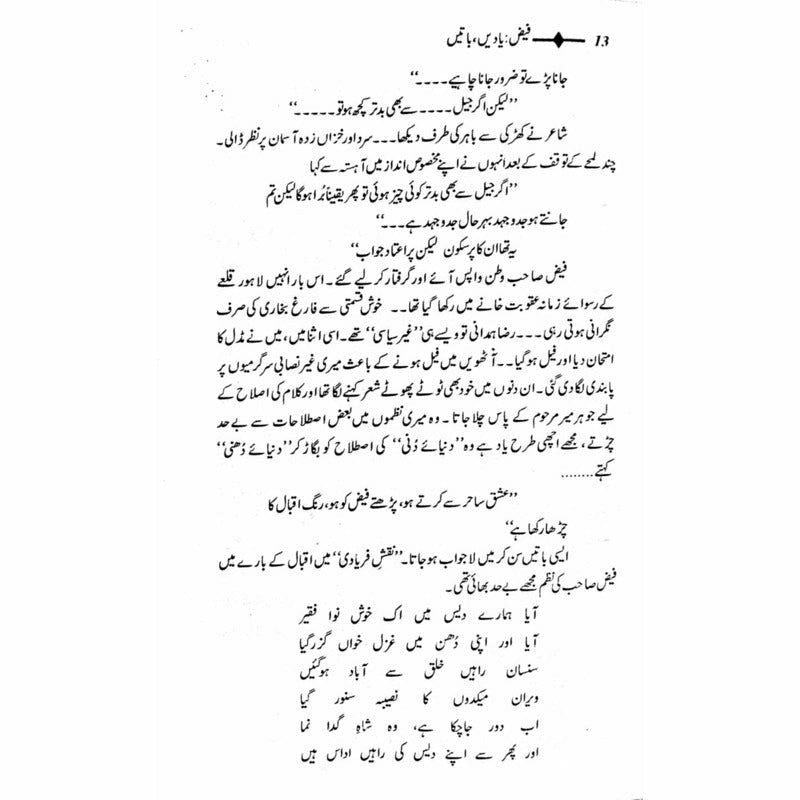 13 فیض: یادیں، باتیں
جانا پڑے تو ضرور جانا چاہیے ۔۔۔۔''
''لیکن اگر جیل ۔۔۔۔ سے بھی بدتر کچھ ہو تو ۔۔۔۔۔''
شاعر نے کھڑکی سے باہر کی طرف دیکھا ۔۔۔ سرد اور خزاں زدہ آسمان پر نظر ڈالی ۔
چند لمحے کے توقف کے بعد انہوں نے اپنے مخصوص انداز میں آہستہ سے کہا
''اگر جیل سے بھی بدتر کوئی چیز ہوئی تو پھر یقیناً بُرا ہوگا لیکن تم
جانتے ہو جدوجہد بہرحال جدوجہد ہے ۔۔۔''
یہ تھا ان کا پرسکون لیکن پر اعتماد جواب''
فیض صاحب وطن واپس آئے اور گرفتار کر لیے گئے ۔ اس بار انہیں لاہور قلعے
کے رسوائے زمانہ عقوبت خانے میں رکھا گیا تھا ۔۔ خوش قسمتی سے فارغ بخاری کی صرف
نگرانی ہوتی رہی ۔۔۔ رضا ہمدانی تو ویسے ہی ''غیر سیاسی'' تھے ۔ اسی اثنا میں، میں نے مڈل کا
امتحان دیا اور فیل ہو گیا ۔۔ آٹھویں میں فیل ہونے کے باعث میری غیر نصابی سرگرمیوں پر
پابندی لگا دی گئی ۔ ان دنوں میں خود بھی ٹوٹے پھوٹے شعر کہنے لگا تھا اور کلام کی اصلاح کے
لیے جوہر میر مرحوم کے پاس چلا جاتا ۔ وہ میری نظموں میں بعض اصطلاحات سے بے حد
چڑتے ، مجھے اچھی طرح یاد ہے وہ ''دنیائے دُنی'' کی اصطلاح کو بگاڑ کر ''دنیائے دُھنی''
کہتے ........
''عشق ساحر سے کرتے ہو، پڑھتے فیض کو ہو، رنگ اقبال کا
چڑھا رکھا ہے''
ایسی باتیں سن کر میں لاجواب ہو جاتا ۔ ''نقشِ فریادی'' میں اقبال کے بارے میں
فیض صاحب کی نظم مجھے بے حد بھائی تھی ۔
آیا ہمارے دیس میں اک خوش نوا فقیر
آیا اور اپنی دُھن میں غزل خواں گزر گیا
سنسان راہیں خلق سے آباد ہو گئیں
ویران میکدوں کا نصیبہ سنور گیا
اب دور جا چکا ہے، وہ شاہِ گدا نما
اور پھر سے اپنے دیس کی راہیں اداس ہیں